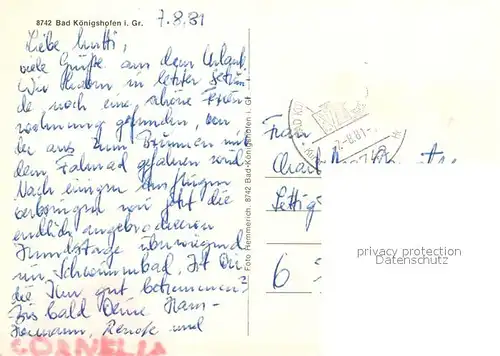 8742 Bad Königshofen i. Gr.
7.8.81
Liebe Mutti,
viele Grüße aus dem Urlaub.
Wir haben in letzter Sekun-
de noch eine schöne Ferien
wohnung gefunden, von
der aus zum Brunnen mit
dem Fahrrad gefahren wird.
Nach einigen Ausflügen
verbringen wir jetzt die
endlich angebrochenen
Hundstage überwiegend
im Schwimmbad. Ist Dir
die Kur gut bekommen?
Bis bald Deine Hans-
Hermann, Renate und
CORNELIA
Foto Hemmerich, 8742 Bad-Königshofen i. Gf
BAD KÖ
-8.81-
Frau
6
privacy protection
Datenschutz